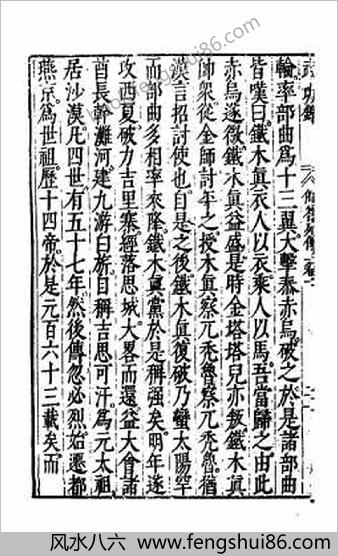 輪率部曲爲十三翼大擊泰赤烏破之於是諸部曲
皆嘆曰鐵木眞衣人以衣乘人以馬吾當歸之由此
赤烏遂微鐵木眞益盛是時金塔塔兒亦叛鐵木眞
師衆從金師討平之授木眞察兀禿魯察兀禿魯猶
漢言招討使也自是之後鐵木眞復破乃蠻太陽罕
而部曲多相率來降鐵木眞黨於是稱强矣明年遂
攻西夏破力吉里寨經落思城大畧而還益大會諸
酋長幹灘河建九游白旂自稱吉思可汗爲元太祖
居沙漠凡四世有五十七年然後傳忽必烈始遷都
燕京爲世祖歷十四帝於是元百六十三載矣而
风水八六 www.fengshui86.com